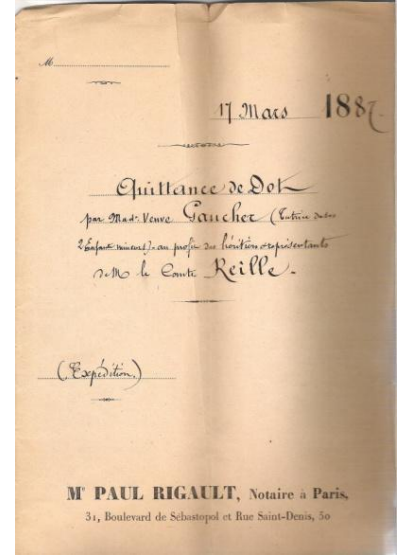 M
17 Mars 1887.
Quittance de Dot
par Made. Veuve Gaucher (Tutrice de ses
2 Enfants mineurs) - au profit des héritiers & représentants
de M. le Comte Reille.
(Expédition.)
Me PAUL RIGAULT, Notaire à Paris,
31, Boulevard de Sébastopol et Rue Saint-Denis, 50